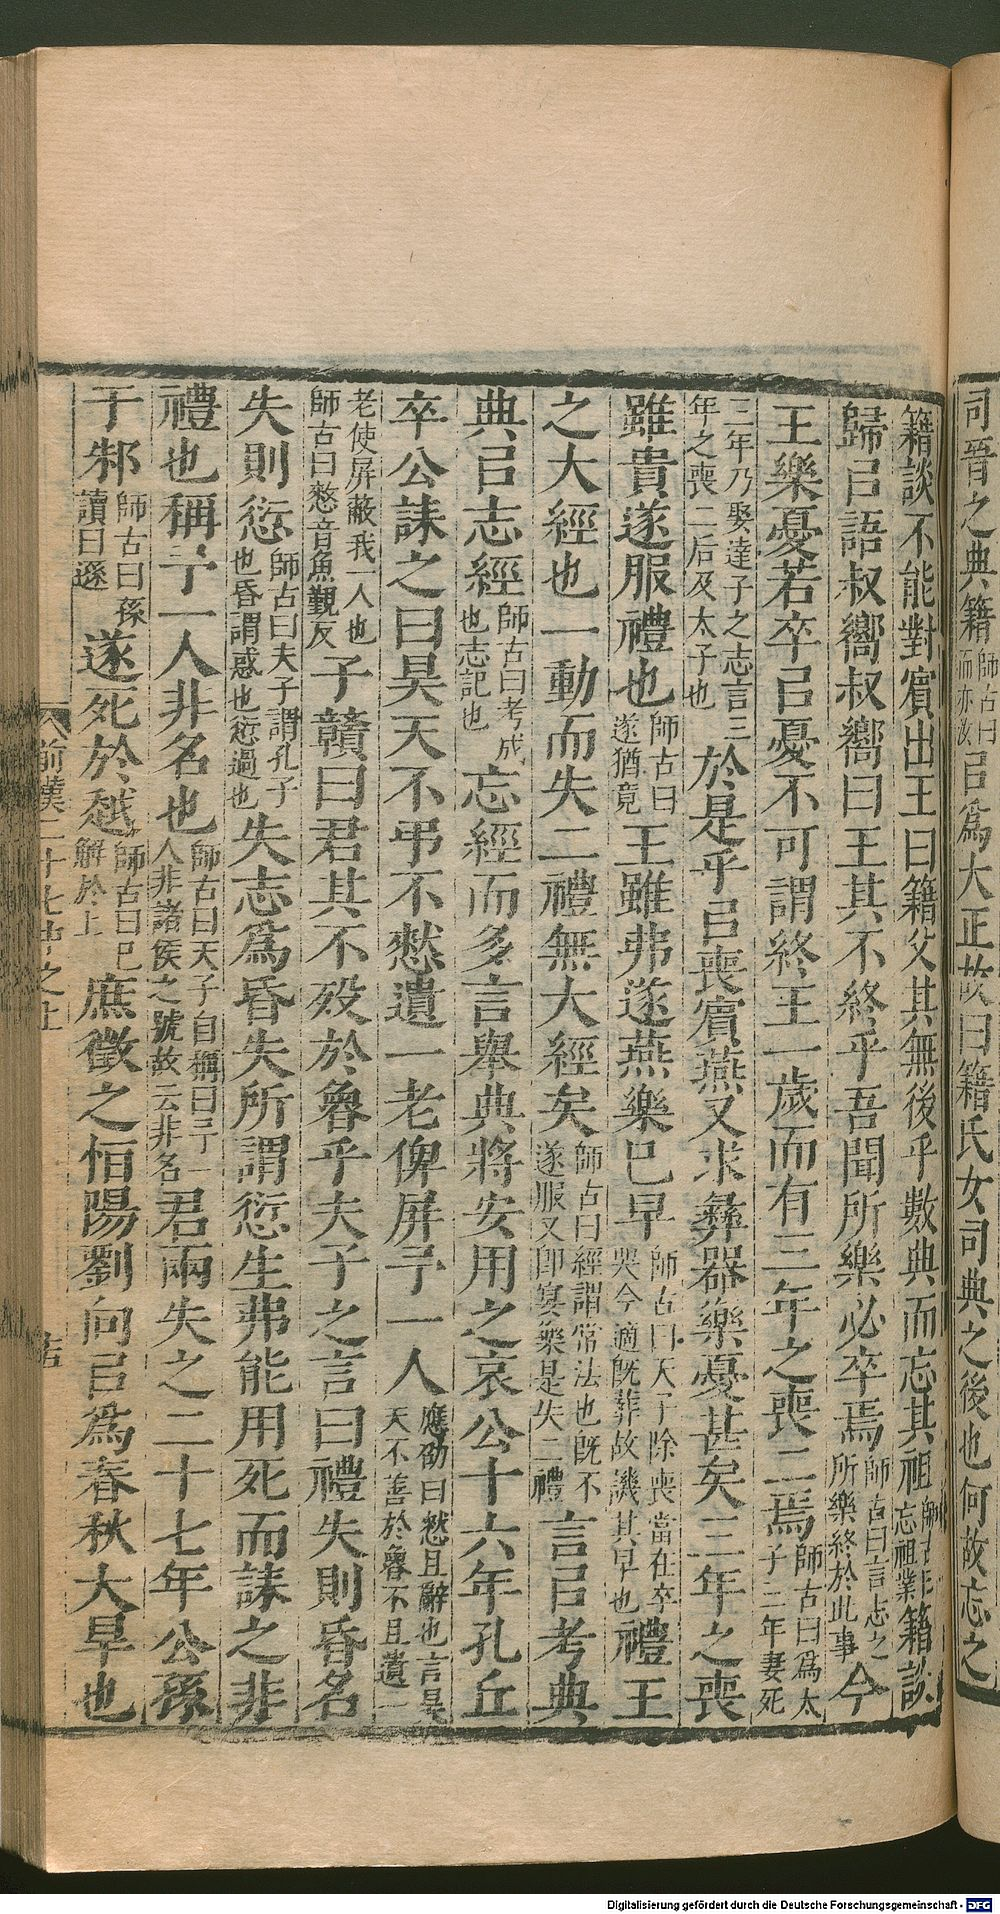 司晉之典籍師古曰而亦汝㠯爲大正故曰籍氏女司典之後也何故忘之
籍談不能對賓出王曰籍父其無後乎數典而忘其祖忘祖業籍談
歸㠯語叔嚮叔嚮曰王其不終乎吾聞所樂必卒焉師古曰言志之所樂終於此事今
王樂憂若卒㠯憂不可謂終王一歲而有三年之喪二焉師古曰爲太子三年妻死
三年乃娶達子之志言三年之喪二后及太子也於是乎㠯喪賓燕又求彝器樂憂甚矣三年之喪
雖貴遂服禮也師古曰遂猶竟王雖弗遂燕樂已早師古曰天子除喪當在卒哭今適旣葬故譏其早也禮王
之大經也一動而失二禮無大經矣師古曰經謂常法也旣不遂服又卽宴樂是失二禮言㠯考典
典㠯志經師古曰考成也志記也忘經而多言舉典將安用之哀公十六年孔丘
卒公誄之曰昊天不弔不憖遺一老俾屏予一人應劭曰憖且辭也言旻天不善於魯不且遺一
老使屏蔽我一人也師古曰憖音魚覲反子贛曰君其不歿於魯乎夫子之言曰禮失則昏名
失則愆師古曰夫子謂孔子也昏謂惑也愆過也失志爲昏失所謂愆生弗能用死而誄之非
禮也稱予一人非名也師古曰天子自稱曰予一人非諸侯之號故云非名君兩失之二十七年公孫
于邾師古曰孫讀曰遜遂死於越師古曰已解於上庶徵之恒陽劉向㠯爲春秋大旱也
前漢二十七中之上
Digitalisierung gefördert durch die Deutsche Forschungsgemeinschaft - DFG